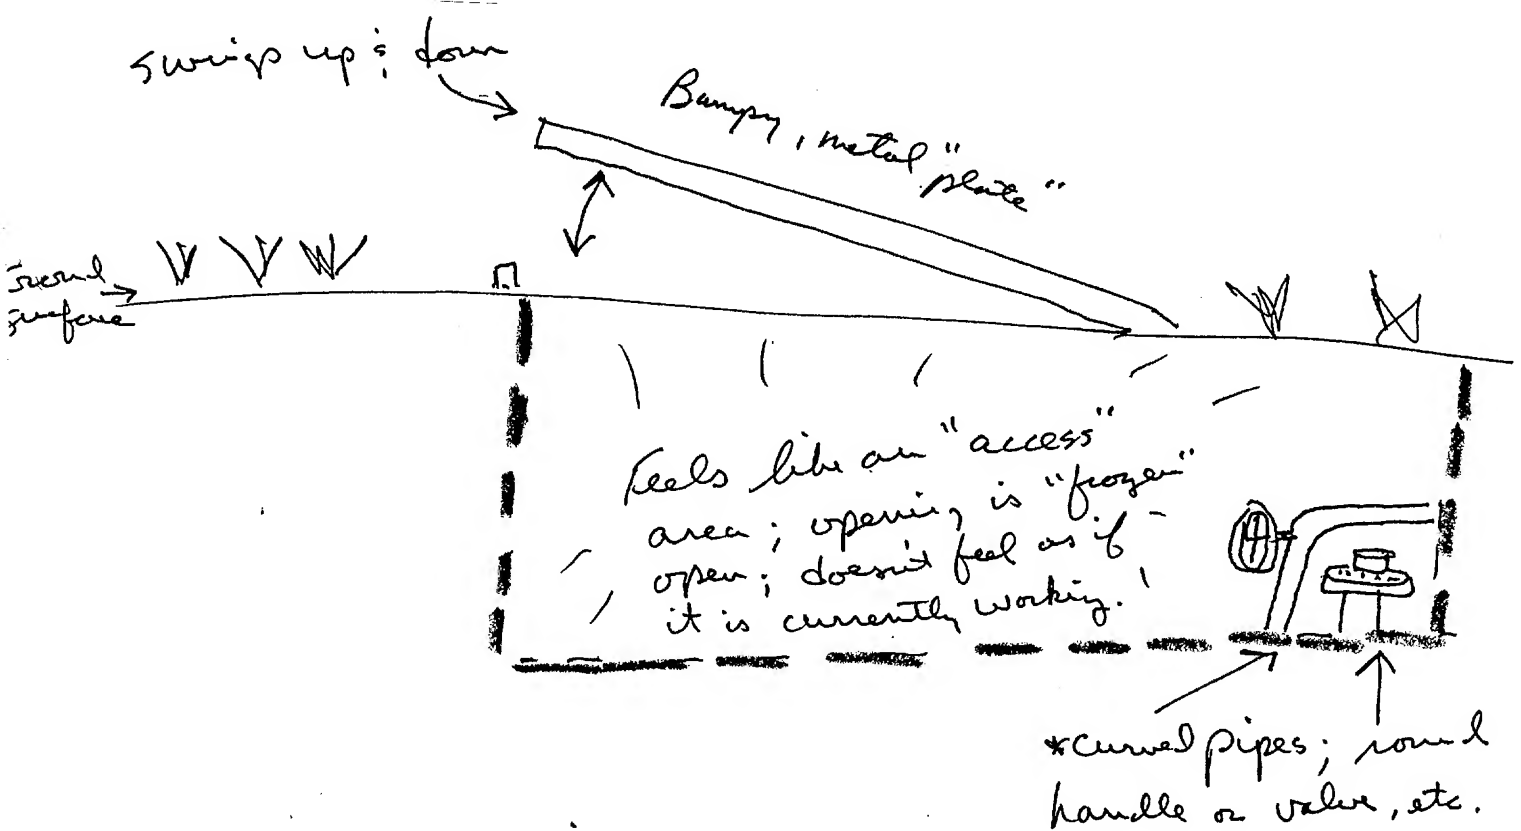 swings up & down
Bumpy, metal "plate"
Ground
surface
Feels like an "access"
area; opening is "frozen"
open; doesn't feel as if
it is currently working.
*curved pipes; round
handle or valve, etc.